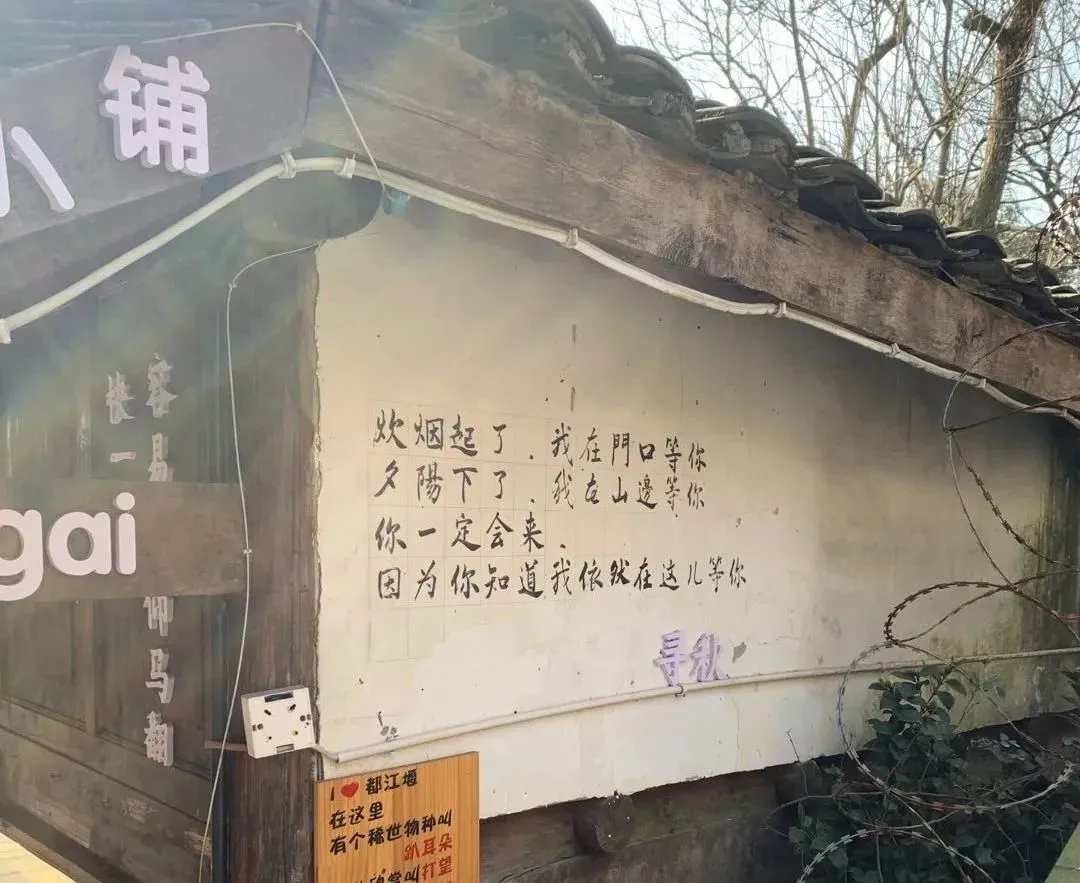 小铺
gai
容易
快一
仰马翻
炊烟起了、我在門口等你
夕陽下了、我在山邊等你
你一定会来、
因为你知道我依然在这儿等你
寻秋
I ❤ 都江堰
在这里
有个稀世物种叫
趴耳朵
叫打望